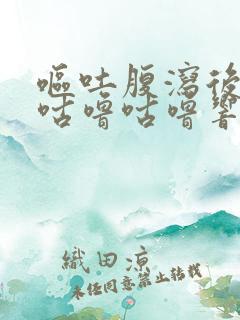 嘔吐腹瀉後
咕嚕咕嚕響
織田涼
未經同意禁止轉載